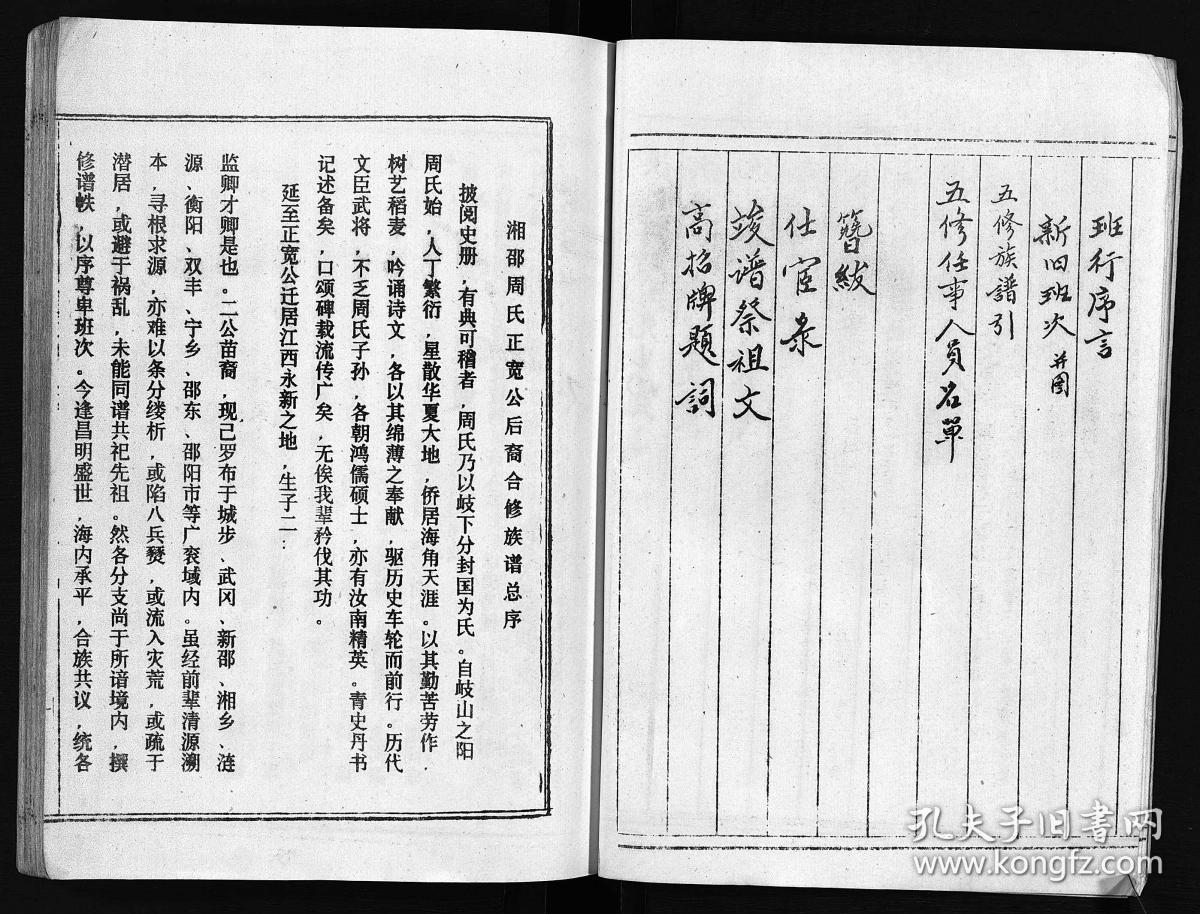 班行序言
新旧班次 并图
五修族譜引
五修任事人员名單
簪紱
仕宦录
竣谱祭祖文
高招牌题詞
湘邵周氏正宽公后裔合修族谱总序
披阅史册，有典可稽者，周氏乃以岐下分封国为氏。自岐山之阳
周氏始，人丁繁衍，星散华夏大地，侨居海角天涯。以其勤苦劳作，
树艺稻麦，吟诵诗文，各以其绵薄之奉献，驱历史车轮而前行。历代
文臣武将，不乏周氏子孙，各朝鸿儒硕士，亦有汝南精英。青史丹书
记述备矣，口颂碑载流传广矣，无俟我辈矜伐其功。
延至正宽公迁居江西永新之地，生子二：
监卿才卿是也。二公苗裔，现已罗布于城步、武冈、新邵、湘乡、涟
源、衡阳、双丰、宁乡、邵东、邵阳市等广袤域内。虽经前辈清源溯
本，寻根求源，亦难以条分缕析，或陷八兵燹，或流入灾荒，或疏于
潜居，或避于祸乱，未能同谱共祀先祖。然各分支尚于所谙境内，撰
修谱帙，以序尊卑班次。今逢昌明盛世，海内承平，合族共议，统各
孔夫子旧書网
www.kongfz.com